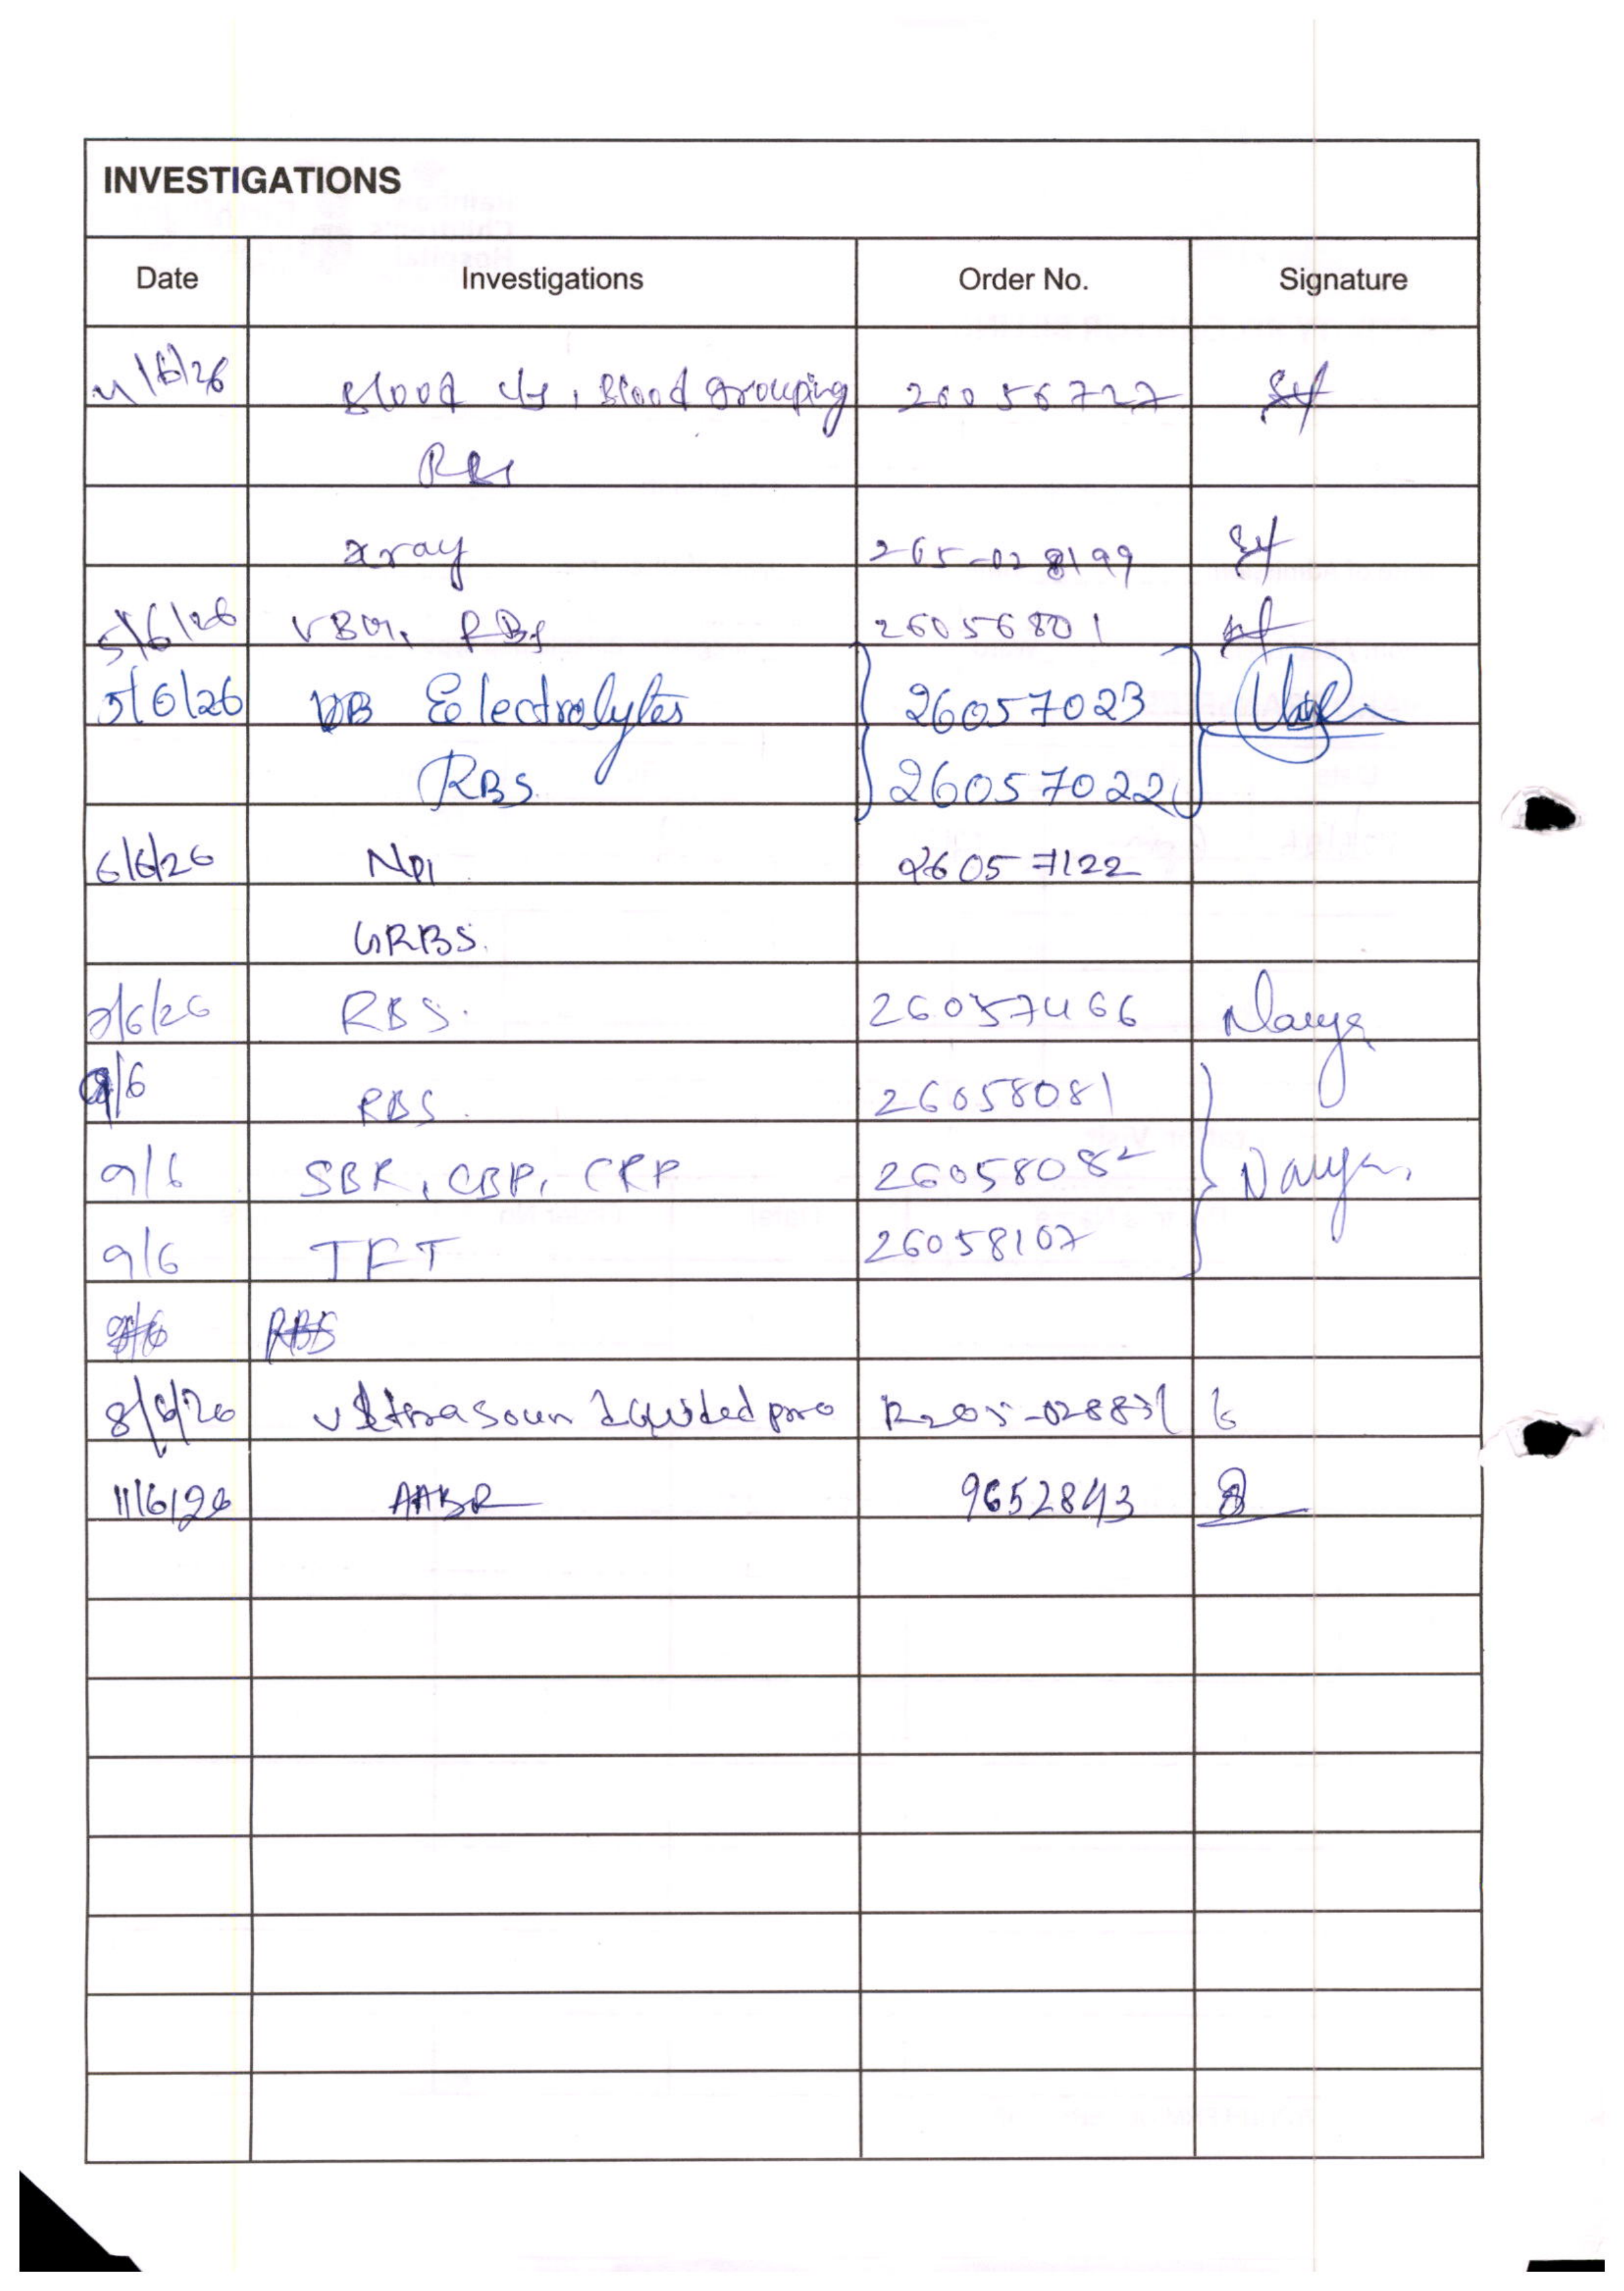 INVESTIGATIONS
Date Investigations Order No. Signature
4/6/26 Blood c/s, Blood grouping 26056727
RBS
xray 265-028199
5/6/26 VBG, RBS 26056801
5/6/26 Electrolytes 26057023
RBS 26057022
6/6/26 NPI 26057122
GRBS.
7/6/26 RBS. 26057466 Navya
9/6 RBS. 26058081
9/6 SBR, CBP, CRP 26058082 Navya
9/6 TFT 26058107
RBS
8/6/26 Ultrasoun Guided pro
11/6/26 AABR 9652843